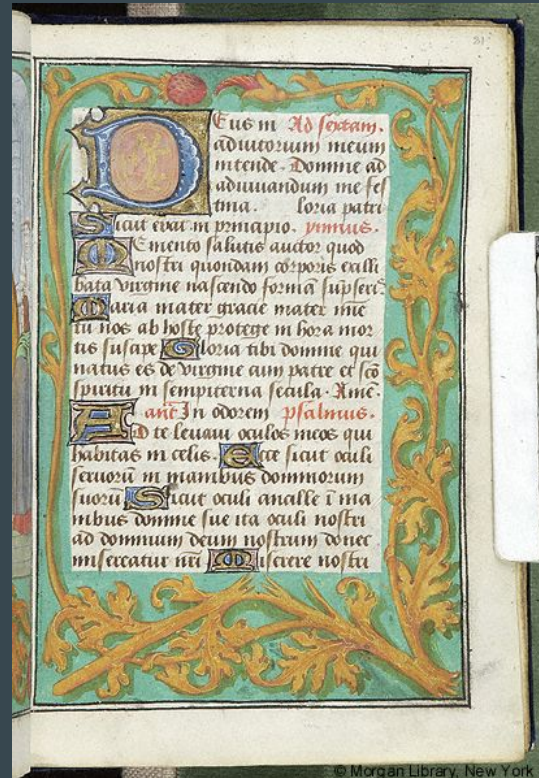 Deus in Ad sextam.
adiutorium meum
intende. Domine ad
adiuuandum me fes
tina. loria patri
Sicut erat in principio. ymnus.
Memento salutis auctor quod
nostri quondam corporis exilli
bata virgine nascendo formā sūpseris
Maria mater gracie mater mīe
tu nos ab hoste protege in hora mor
tis suscipe Gloria tibi domine qui
natus es de virgine cum patre et scō
spiritu in sempiterna secula. Amē.
anē In odorem psalmus.
AD te leuaui oculos meos qui
habitas in celis. Ecce sicut oculi
seruorū in manibus dominorum
suorū Sicut oculi ancille ī ma
nibus domine sue ita oculi nostri
ad dominum deum nostrum donec
misereatur nrī Miserere nostri
© Morgan Library, New York